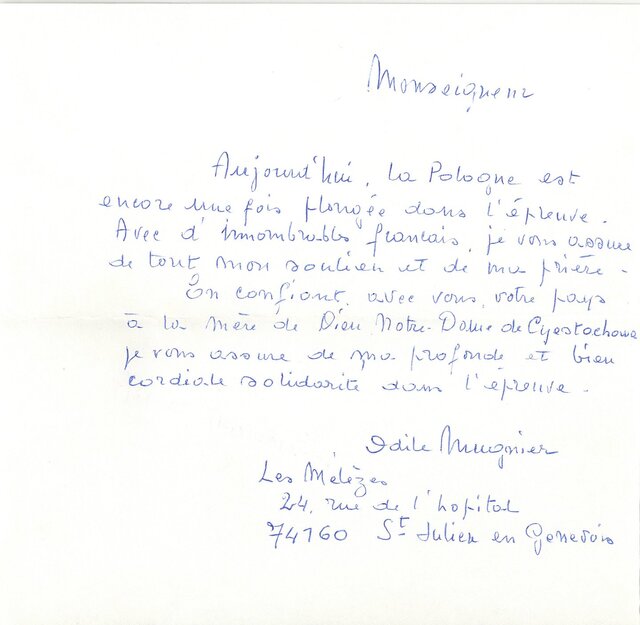 Monseigneur
Aujourd'hui, la Pologne est
encore une fois plongée dans l'épreuve.
Avec d'innombrables français, je vous assure
de tout mon soutien et de ma prière.
En confiant, avec vous, votre pays
à la Mère de Dieu Notre-Dame de Czestochowa
je vous assure de ma profonde et bien
cordiale solidarité dans l'épreuve.
Odile Mugnier
Les Mélèzes
24, rue de l'hopital
74160 St Julien en Genevois